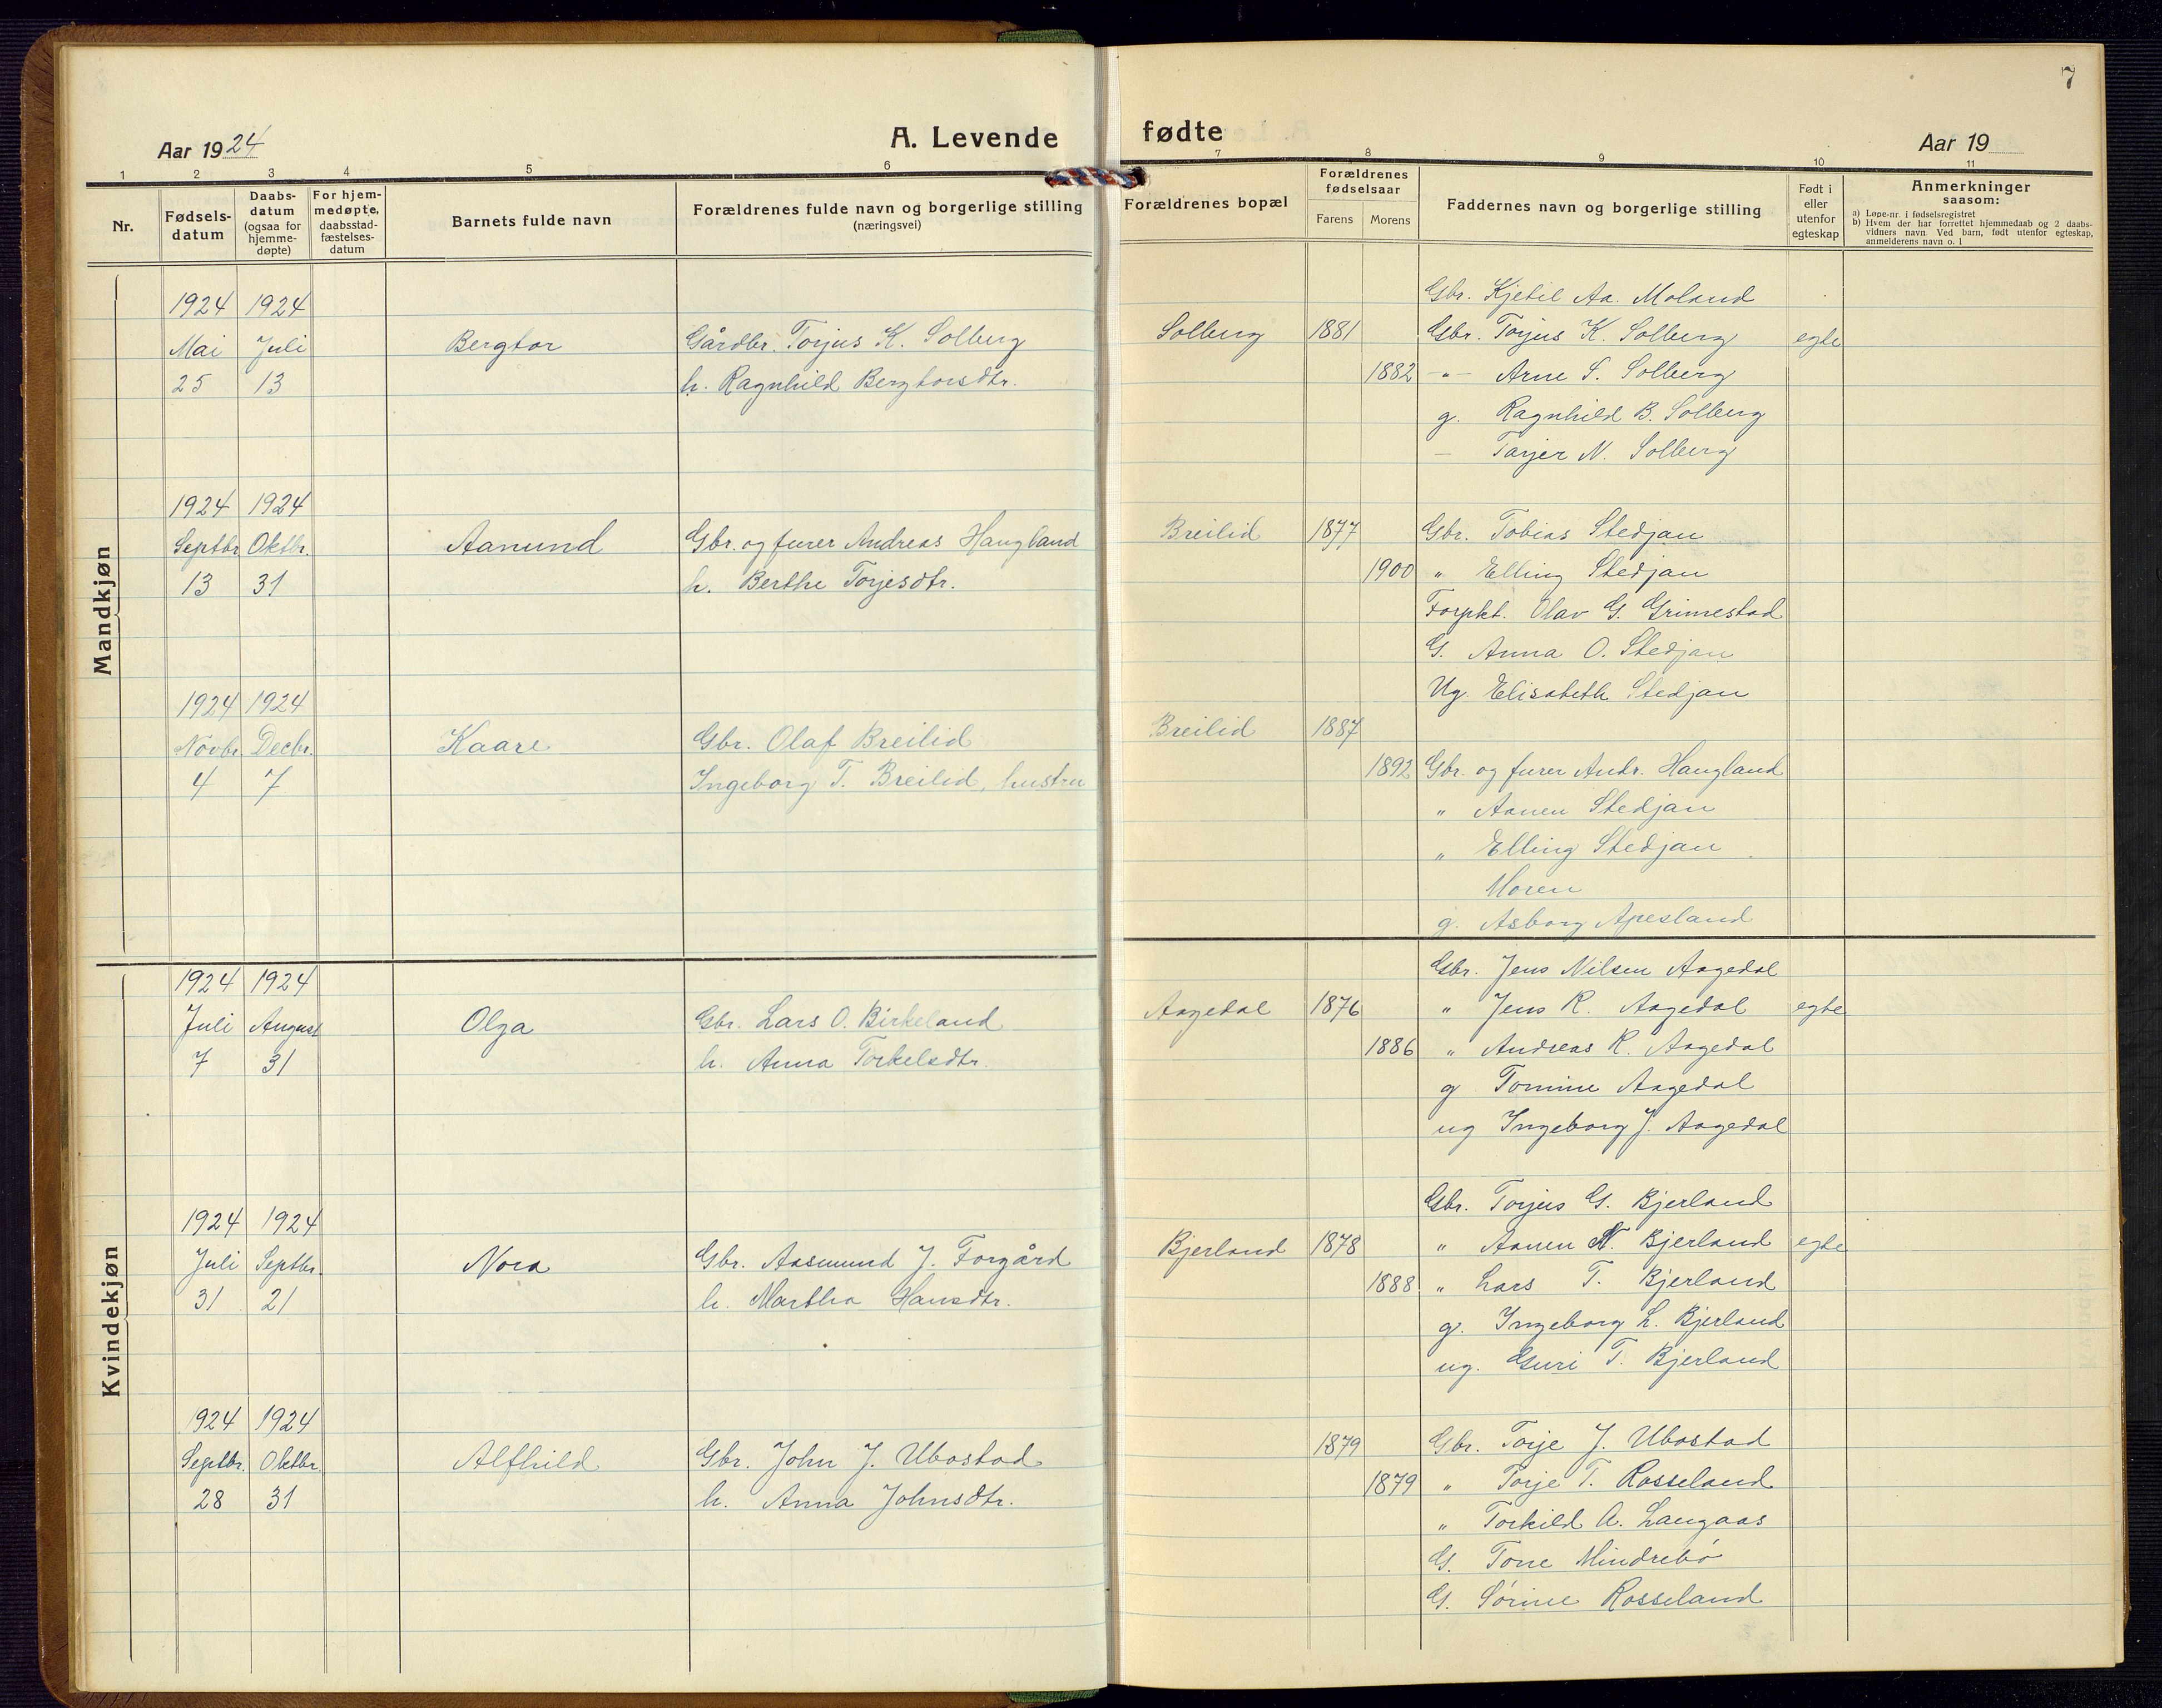 7
Aar 1924
A. Levende fødte
Aar 19
1 2 3 4 5 6 7 8 9 10 11
Nr.
Fødsels-
datum
Daabs-
datum
(ogsaa for
hjemme-
døpte)
For hjem-
medøpte,
daabsstad-
fæstelses-
datum
Barnets fulde navn
Forældrenes fulde navn og borgerlige stilling
(næringsvei)
Forældrenes bopæl
Forældrenes
fødselsaar
Farens Morens
Faddernes navn og borgerlige stilling
Født i
eller
utenfor
egteskap
Anmerkninger
saasom:
a) Løpe-nr. i fødselsregistret
b) Hvem der har forrettet hjemmedaab og 2 daabs-
vidners navn. Ved barn, født utenfor egteskap,
anmelderens navn o. l
Mandkjøn
1924 1924 Gbr. Kjetil Aa. Moland
Mai Juli Bergtor Gårdbr. Torjus K. Solberg Solberg 1881 Gbr. Torjus K. Solberg egte
25 13 h. Ragnhild Bergtorsdtr. 1882 -"- Arne S. Solberg
g. Ragnhild B. Solberg
– Tarjer N. Solberg
1924 1924
Septbr Oktbr. Aanund Gbr. og furer Andreas Haugland Breilid 1877 Gbr. Tobias Stedjan
13 31 h. Berthe Torjesdtr. 1900 " Elling Stedjan
Forpkt. Olav G. Grimestad
G. Anna O. Stedjan
Ug. Elisabeth Stedjan
1924 1924
Novbr. Decbr. Kaare Gbr. Olaf Breilid Breilid 1887
4 7 Ingeborg T. Breilid, hustru 1892 Gbr. og furer Andr. Haugland
" Aanen Stedjan
" Elling Stedjan
Moren
g. Asborg Apesland
Kvindekjøn
1924 1924 Gbr. Jens Nilsen Aagedal
Juli August Olga Gbr. Lars O. Birkeland Aagedal 1876 " Jens R. Aagedal egte
7 31 h. Anna Torkelsdtr. 1886 " Andreas R. Aagedal
g Tomine Aagedal
ug Ingeborg J. Aagedal
1924 1924 Gbr. Torjus G. Bjerland
Juli Septbr. Nora Gbr. Aasmund J. Forgård Bjerland 1878 " Aanen N. Bjerland egte
31 21 h. Martha Hansdtr. 1888 " Lars T. Bjerland
g. Ingeborg L. Bjerland
ug. Guri T. Bjerland
1924 1924
Septbr. Oktbr. Alfhild Gbr. John J. Ubostad 1879 Gbr. Torje J. Ubostad
28 31 h. Anna Johnsdtr. 1879 " Torje T. Rosseland
" Torkild A. Langaas
G. Tone Mindrebö
G. Sörine Rosseland